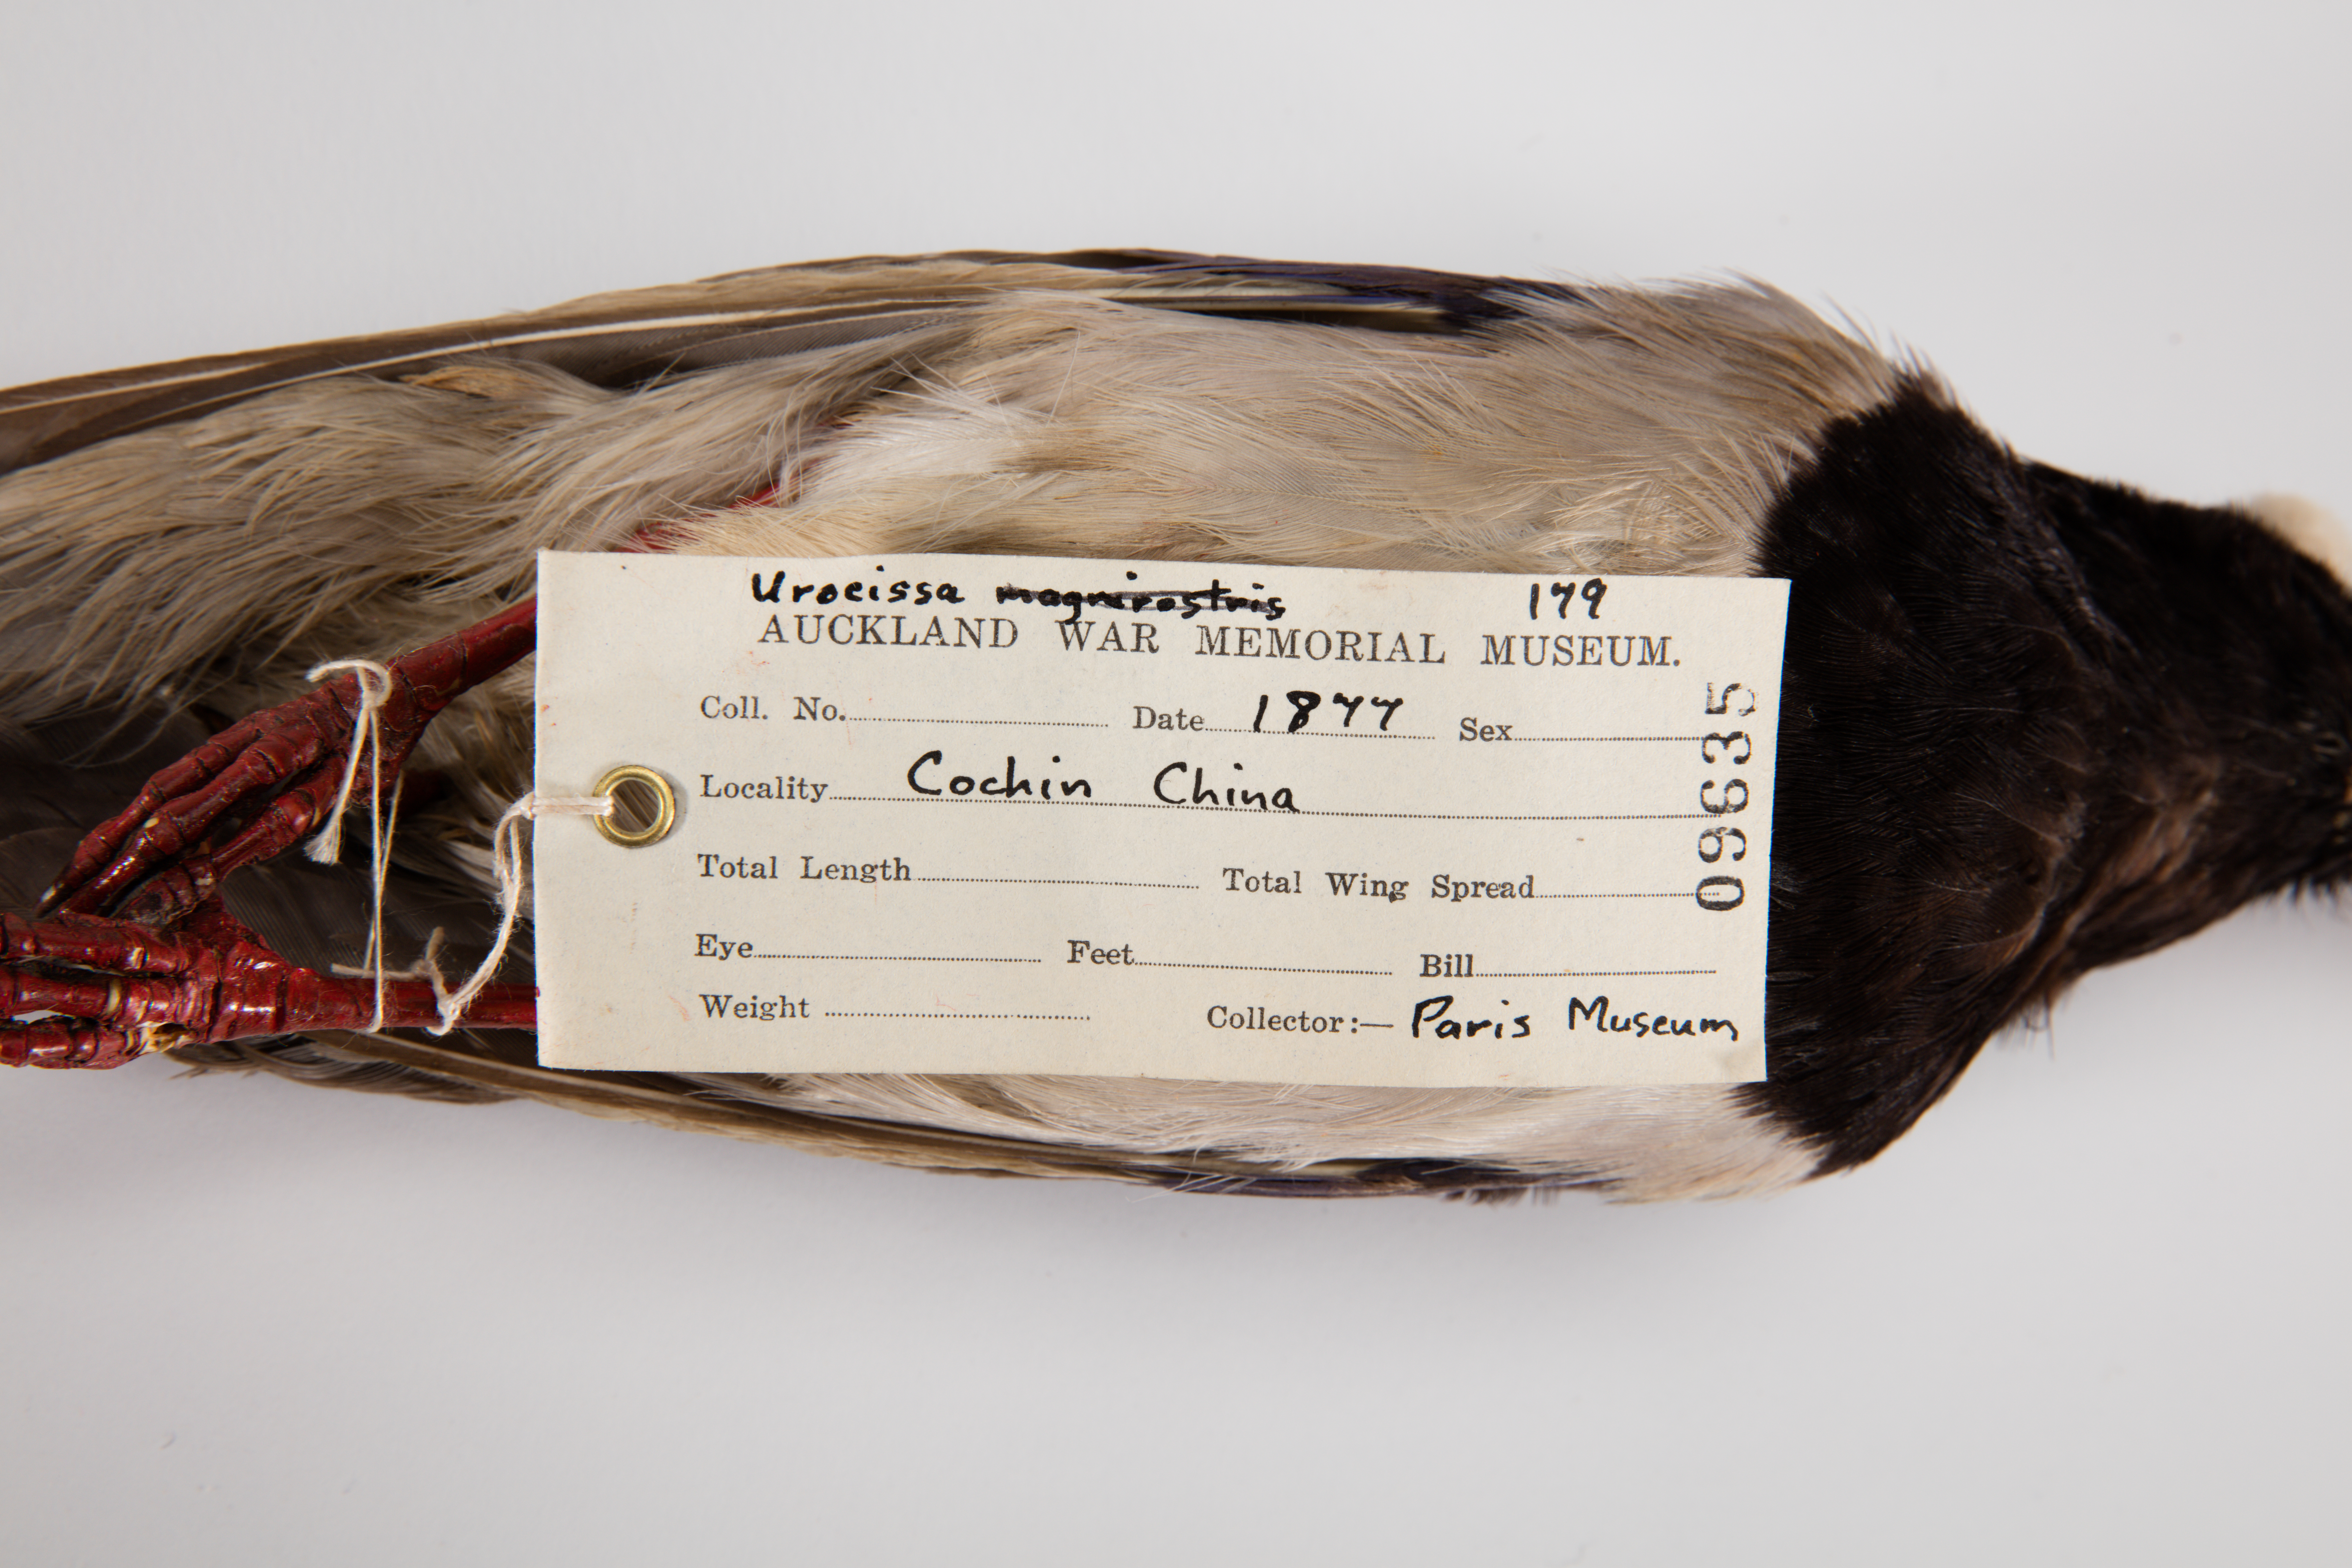 Urocissa magnirostris 179
AUCKLAND WAR MEMORIAL MUSEUM.
Coll. No. Date 1877 Sex
Locality Cochin China
Total Length Total Wing Spread
Eye Feet Bill
Weight Collector:— Paris Museum
09635